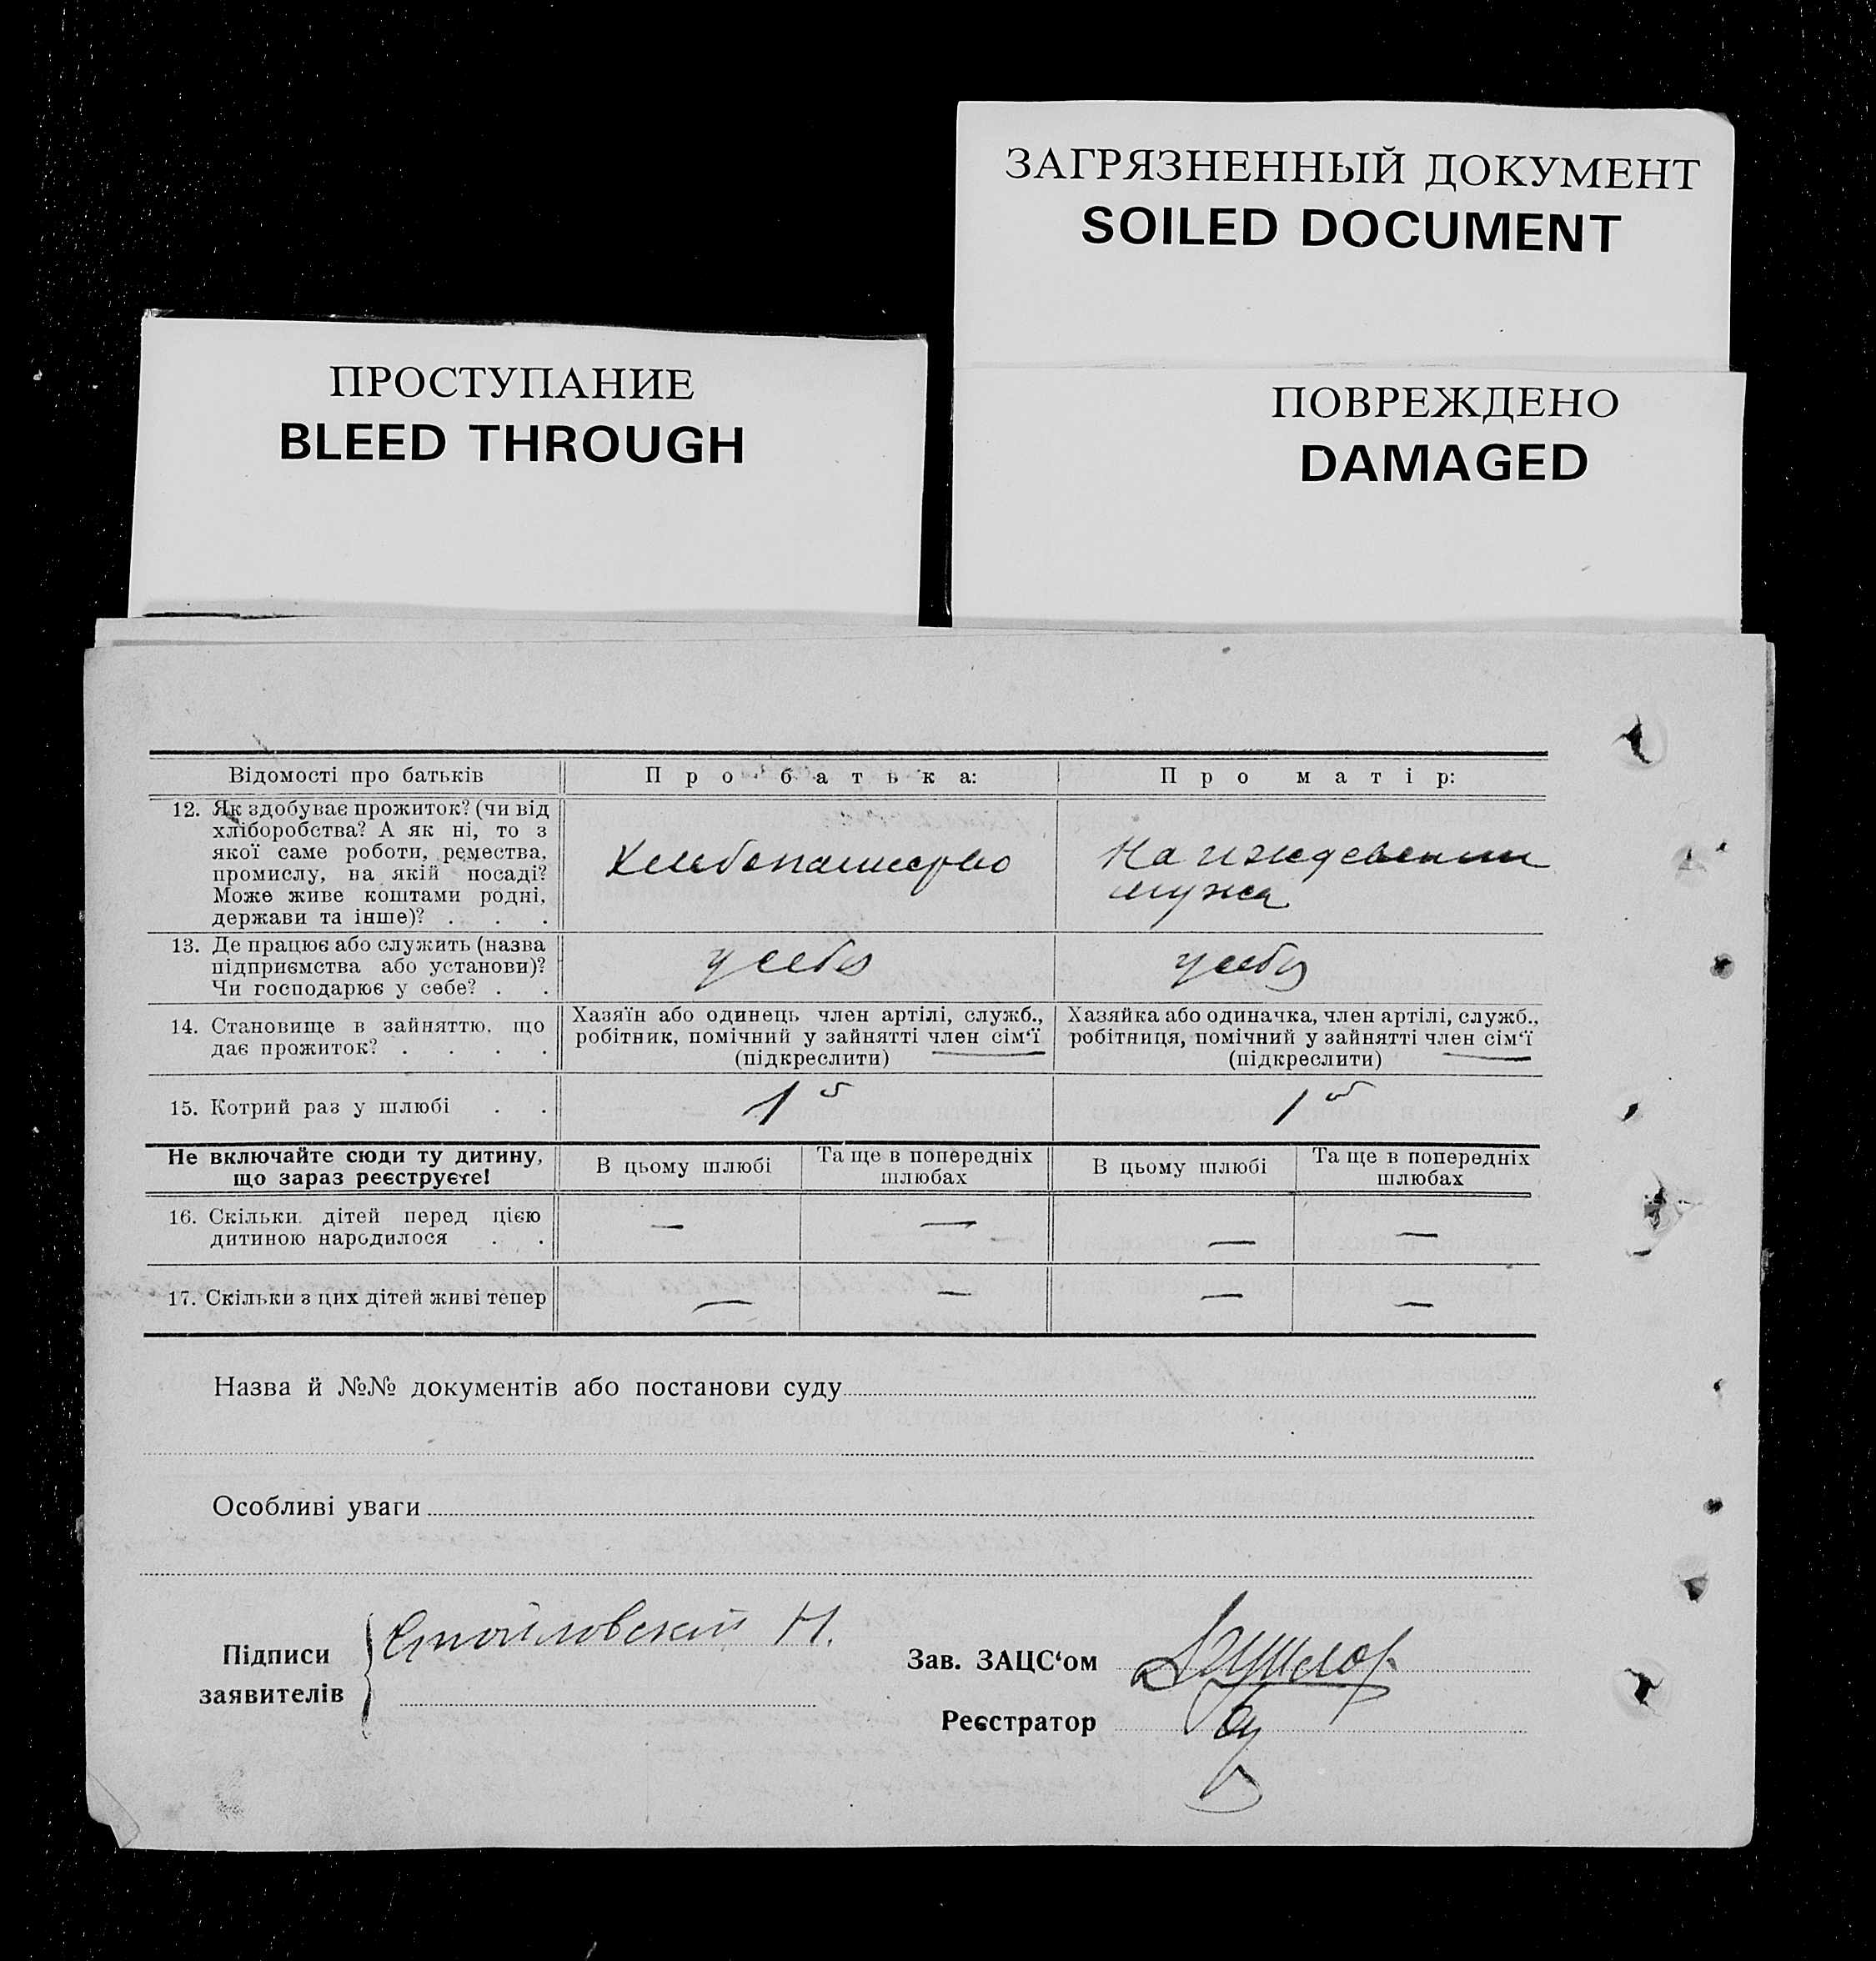 ЗАГРЯЗНЕННЫЙ ДОКУМЕНТ
SOILED DOCUMENT
ПРОСТУПАНИЕ
BLEED THROUGH
ПОВРЕЖДЕНО
DAMAGED
Відомості про батьків
Про батька:
Про матір:
12. Як здобуває прожиток? (чи від
хліборобства? А як ні, то з
якої саме роботи, ремества,
промислу, на якій посаді?
Може живе коштами родні,
держави та інше)? . . .
Хлебопашество
На иждевении
мужа
13. Де працює або служить (назва
підприємства або установи)?
Чи господарює у себе? . .
у себя
у себя
14. Становище в зайняттю, що
дає прожиток? . . . .
Хазяїн або одинець член артілі, служб.,
робітник, помічний у зайнятті член сім‘ї
(підкреслити)
Хазяйка або одиначка, член артілі, служб.,
робітниця, помічний у зайнятті член сім‘ї
(підкреслити)
15. Котрий раз у шлюбі . .
1й
1й
Не включайте сюди ту дитину,
що зараз реєструєте!
В цьому шлюбі
Та ще в попередніх
шлюбах
В цьому шлюбі
Та ще в попередніх
шлюбах
16. Скільки дітей перед цією
дитиною народилося . .
— — — —
17. Скільки з цих дітей живі тепер
— — — —
Назва й №№ документів або постанови суду
Особливі уваги
Підписи
заявителів
Стойловский Н.
Зав. ЗАЦС‘ом
Реєстратор